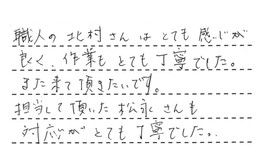 職人の北村さんはとても感じが
良く、作業もとても丁寧でした。
また来て頂きたいです。
担当して頂いた松永さんも
対応がとても丁寧でした。